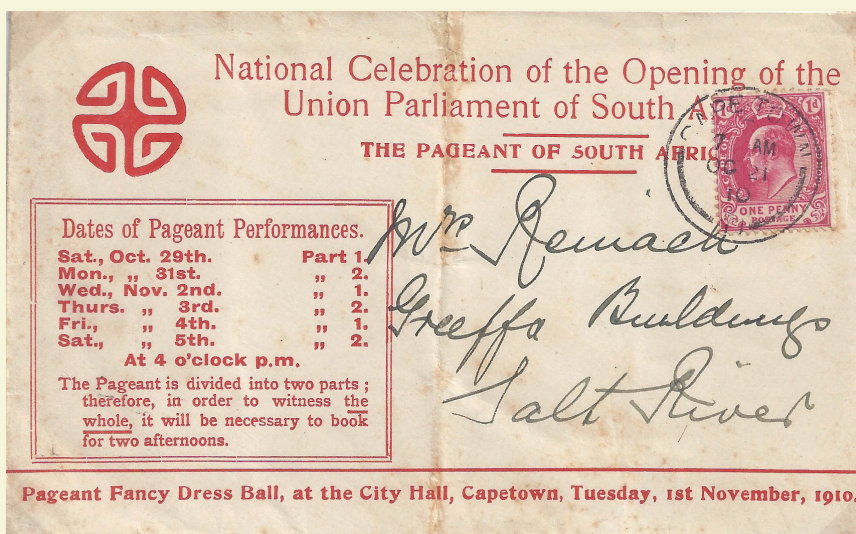 National Celebration of the Opening of the
Union Parliament of South A
THE PAGEANT OF SOUTH AFRIC
1d
CAPE TOWN
7 AM
OC 21
10
ONE PENNY
POSTAGE
Dates of Pageant Performances.
Sat., Oct. 29th. Part 1.
Mon., „ 31st. „ 2.
Wed., Nov. 2nd. „ 1.
Thurs. „ 3rd. „ 2.
Fri., „ 4th. „ 1.
Sat., „ 5th. „ 2.
At 4 o'clock p.m.
The Pageant is divided into two parts ;
therefore, in order to witness the
whole, it will be necessary to book
for two afternoons.
Mrs Reinach
Greeffs Buildings
Salt River
Pageant Fancy Dress Ball, at the City Hall, Capetown, Tuesday, 1st November, 1910.